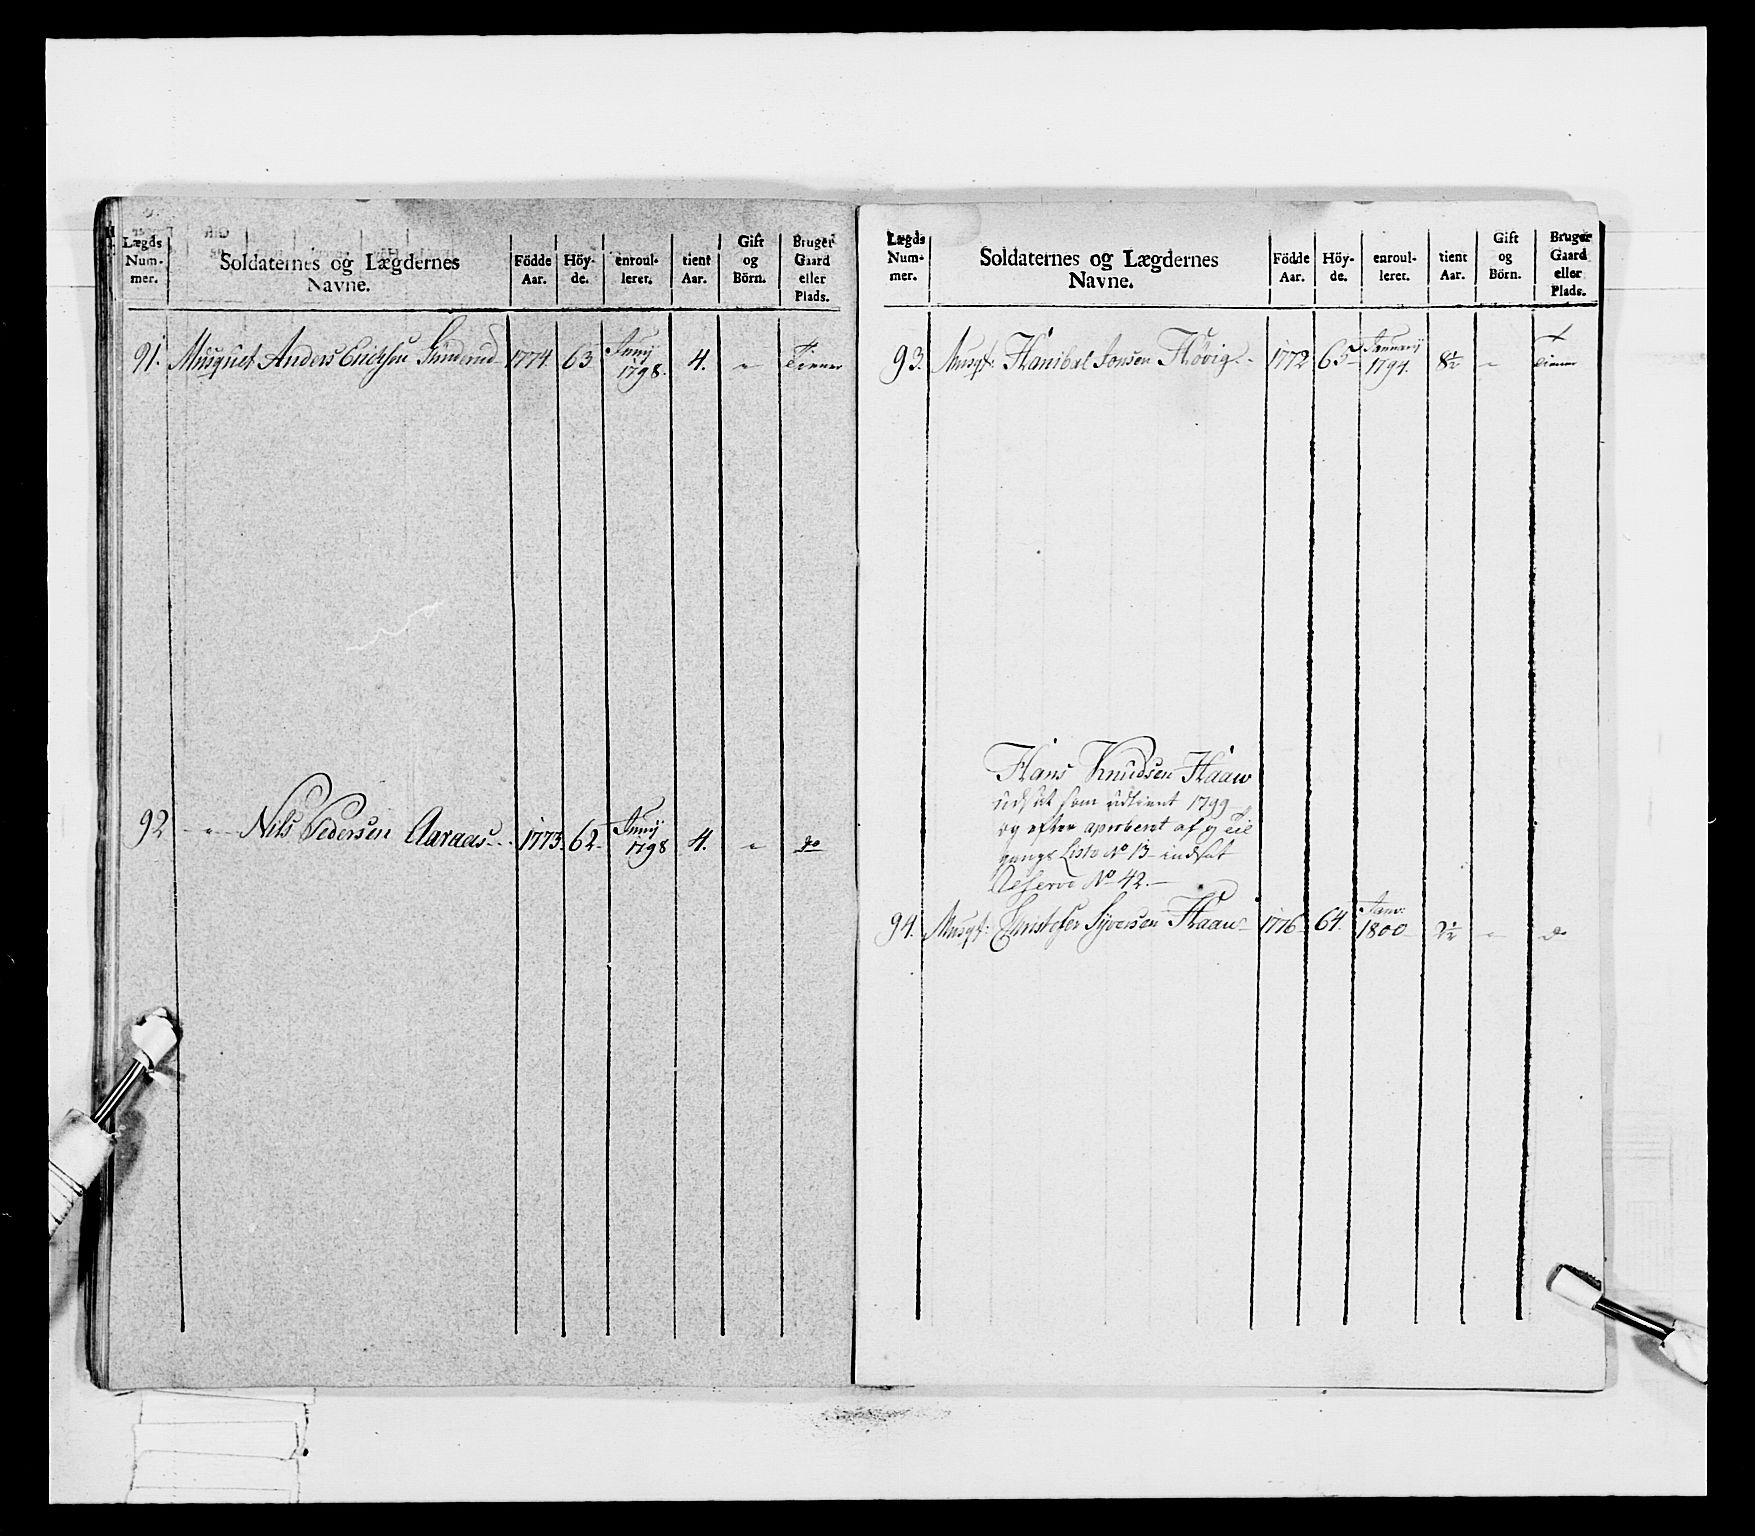 Lægds Num- mer. Soldaternes og Lægdernes Navne. Födde Aar. Höy- de. enroul- leret. tient Aar. Gift og Börn. Bruger Gaard eller Plads.
91. Musquet Anders Erichsen Gunderud 1774. 63 Junij 1798. 4. " Tienner
92 " Nils Pedersen Aaraas 1773. 62 Junij 1798 4. " do
Lægds Num- mer. Soldaternes og Lægdernes Navne. Födde Aar. Höy- de. enroul- leret. tient Aar. Gift og Börn. Bruger Gaard eller Plads.
93. Musqt: Hanibal Jonsen Høvig 1772 65 Januarij 1794. 8½ " Tienner
Hans Knudsen Haaw
udsat som udtient 1799
og efter aproberet af og
gangs Liste No 13 indsat
Reserve No 42.
94. Musqt: Christofer Syversen Haaw 1776 64. Janv: 1800 2½ " do